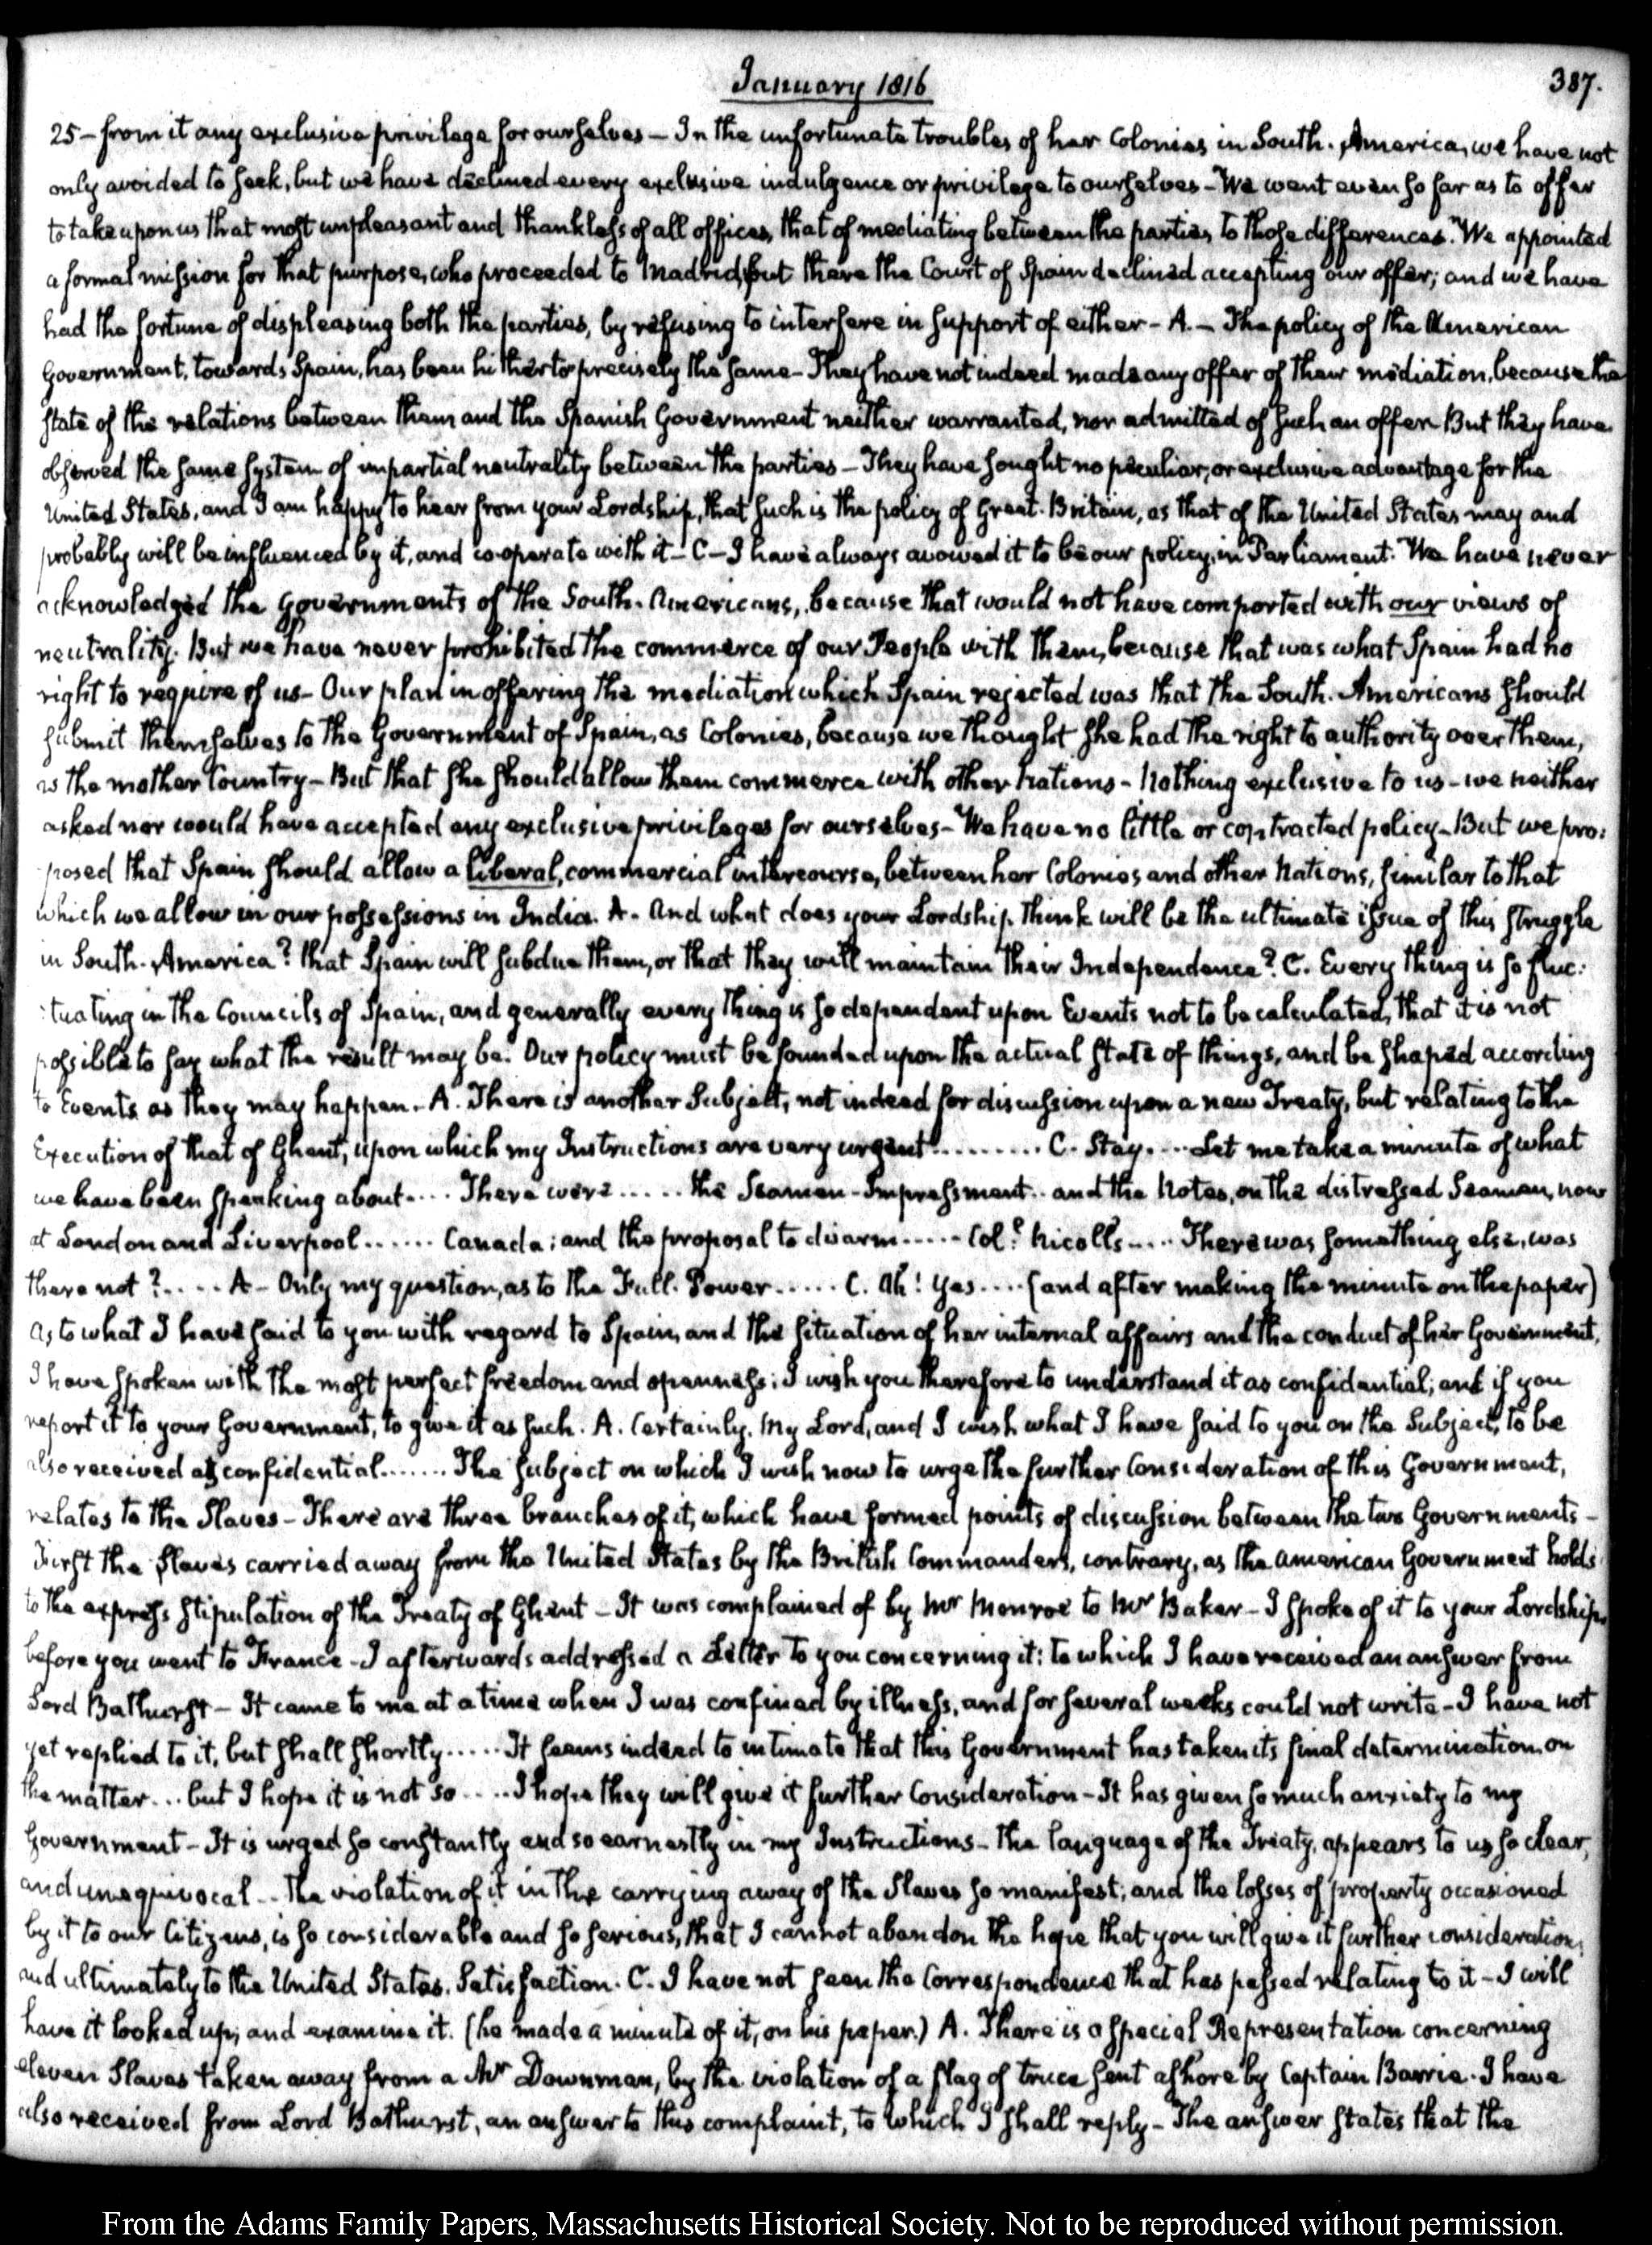 January 1816
387.
25 - from it any exclusive privilege for ourselves - In the unfortunate troubles of her Colonies in South-America, we have not
only avoided to seek, but we have declined every exclusive indulgence or privilege to ourselves - We went even so far as to offer
to take upon us that most unpleasant and thankless of all offices, that of mediating between the parties to those differences. We appointed
a formal mission for that purpose, who proceeded to Madrid, but there the Court of Spain declined accepting our offer; and we have
had the fortune of displeasing both the parties, by refusing to interfere in support of either - A. - The policy of the American
Government, towards Spain, has been hitherto precisely the same - They have not indeed made any offer of their mediation, because the
state of the relations between them and the Spanish Government neither warranted, nor admitted of such an offer. But they have
observed the same system of impartial neutrality between the parties - They have sought no peculiar, or exclusive advantage for the
United States, and I am happy to hear from your Lordship, that such is the policy of Great-Britain, as that of the United States may and
probably will be influenced by it, and co-operate with it - C - I have always avowed it to be our policy, in Parliament. We have never
acknowledged the Governments of the South-Americans, because that would not have comported with our views of
neutrality. But we have never prohibited the commerce of our People with them, because that was what Spain had no
right to require of us - Our plan in offering the mediation which Spain rejected was that the South-Americans should
submit themselves to the Government of Spain, as Colonies, because we thought she had the right to authority over them,
as the mother Country - But that she should allow them commerce with other Nations - Nothing exclusive to us - we neither
asked nor would have accepted any exclusive privileges for ourselves - We have no little or contracted policy - But we pro:
:posed that Spain should allow a liberal, commercial intercourse, between her Colonies and other Nations, similar to that
which we allow in our possessions in India. A - And what does your Lordship think will be the ultimate issue of this struggle
in South-America? that Spain will subdue them, or that they will maintain their Independence? C. Every thing is so fluc:
:tuating in the Councils of Spain, and generally every thing is so dependent upon Events not to be calculated, that it is not
possible to say what the result may be. Our policy must be founded upon the actual state of things, and be shaped according
to Events as they may happen. A. There is another Subject, not indeed for discussion upon a new Treaty, but relating to the
Execution of that of Ghent, upon which my Instructions are very urgent ......... C. Stay .... Let me take a minute of what
we have been speaking about .... There were ..... the Seamen - Impressment .. and the Notes, on the distressed Seamen, now
at London and Liverpool ...... Canada; and the proposal to disarm ..... Coll. Nicolls .... There was something else, was
there not? ..... A - Only my question, as to the Full-Power ..... C. Ah! Yes .... (and after making the minute on the paper)
As to what I have said to you with regard to Spain, and the situation of her internal affairs and the conduct of her Government,
I have spoken with the most perfect freedom and openness; I wish you therefore to understand it as confidential; and if you
report it to your Government, to give it as such. A. Certainly, My Lord, and I wish what I have said to you on the Subject, to be
also received as confidential ....... The subject on which I wish now to urge the further Consideration of this Government,
relates to the Slaves - There are three branches of it, which have formed points of discussion between the two Governments -
First the Slaves carried away from the United States by the British Commanders, contrary, as the American Government holds
to the express stipulation of the Treaty of Ghent - It was complained of by Mr Monroe to Mr Baker - I spoke of it to your Lordship,
before you went to France - I afterwards addressed a Letter to you concerning it: to which I have received an answer from
Lord Bathurst - It came to me at a time when I was confined by illness, and for several weeks could not write - I have not
yet replied to it, but shall shortly ..... It seems indeed to intimate that this Government has taken its final determination on
the matter ... but I hope it is not so .... I hope they will give it further Consideration - It has given so much anxiety to my
Government - It is urged so constantly and so earnestly in my Instructions - The language of the Treaty, appears to us so clear,
and unequivocal .. The violation of it in the carrying away of the Slaves so manifest; and the losses of property occasioned
by it to our Citizens, is so considerable and so serious, that I cannot abandon the hope that you will give it further consideration,
and ultimately to the United States, Satisfaction. C. I have not seen the Correspondence that has passed relating to it - I will
have it looked up, and examine it. (he made a minute of it, on his paper.) A. There is a special Representation concerning
eleven Slaves taken away from a Mr Downman, by the violation of a flag of truce sent ashore by Captain Barrie. I have
also received from Lord Bathurst, an answer to this complaint, to which I shall reply - The answer states that the
From the Adams Family Papers, Massachusetts Historical Society. Not to be reproduced without permission.